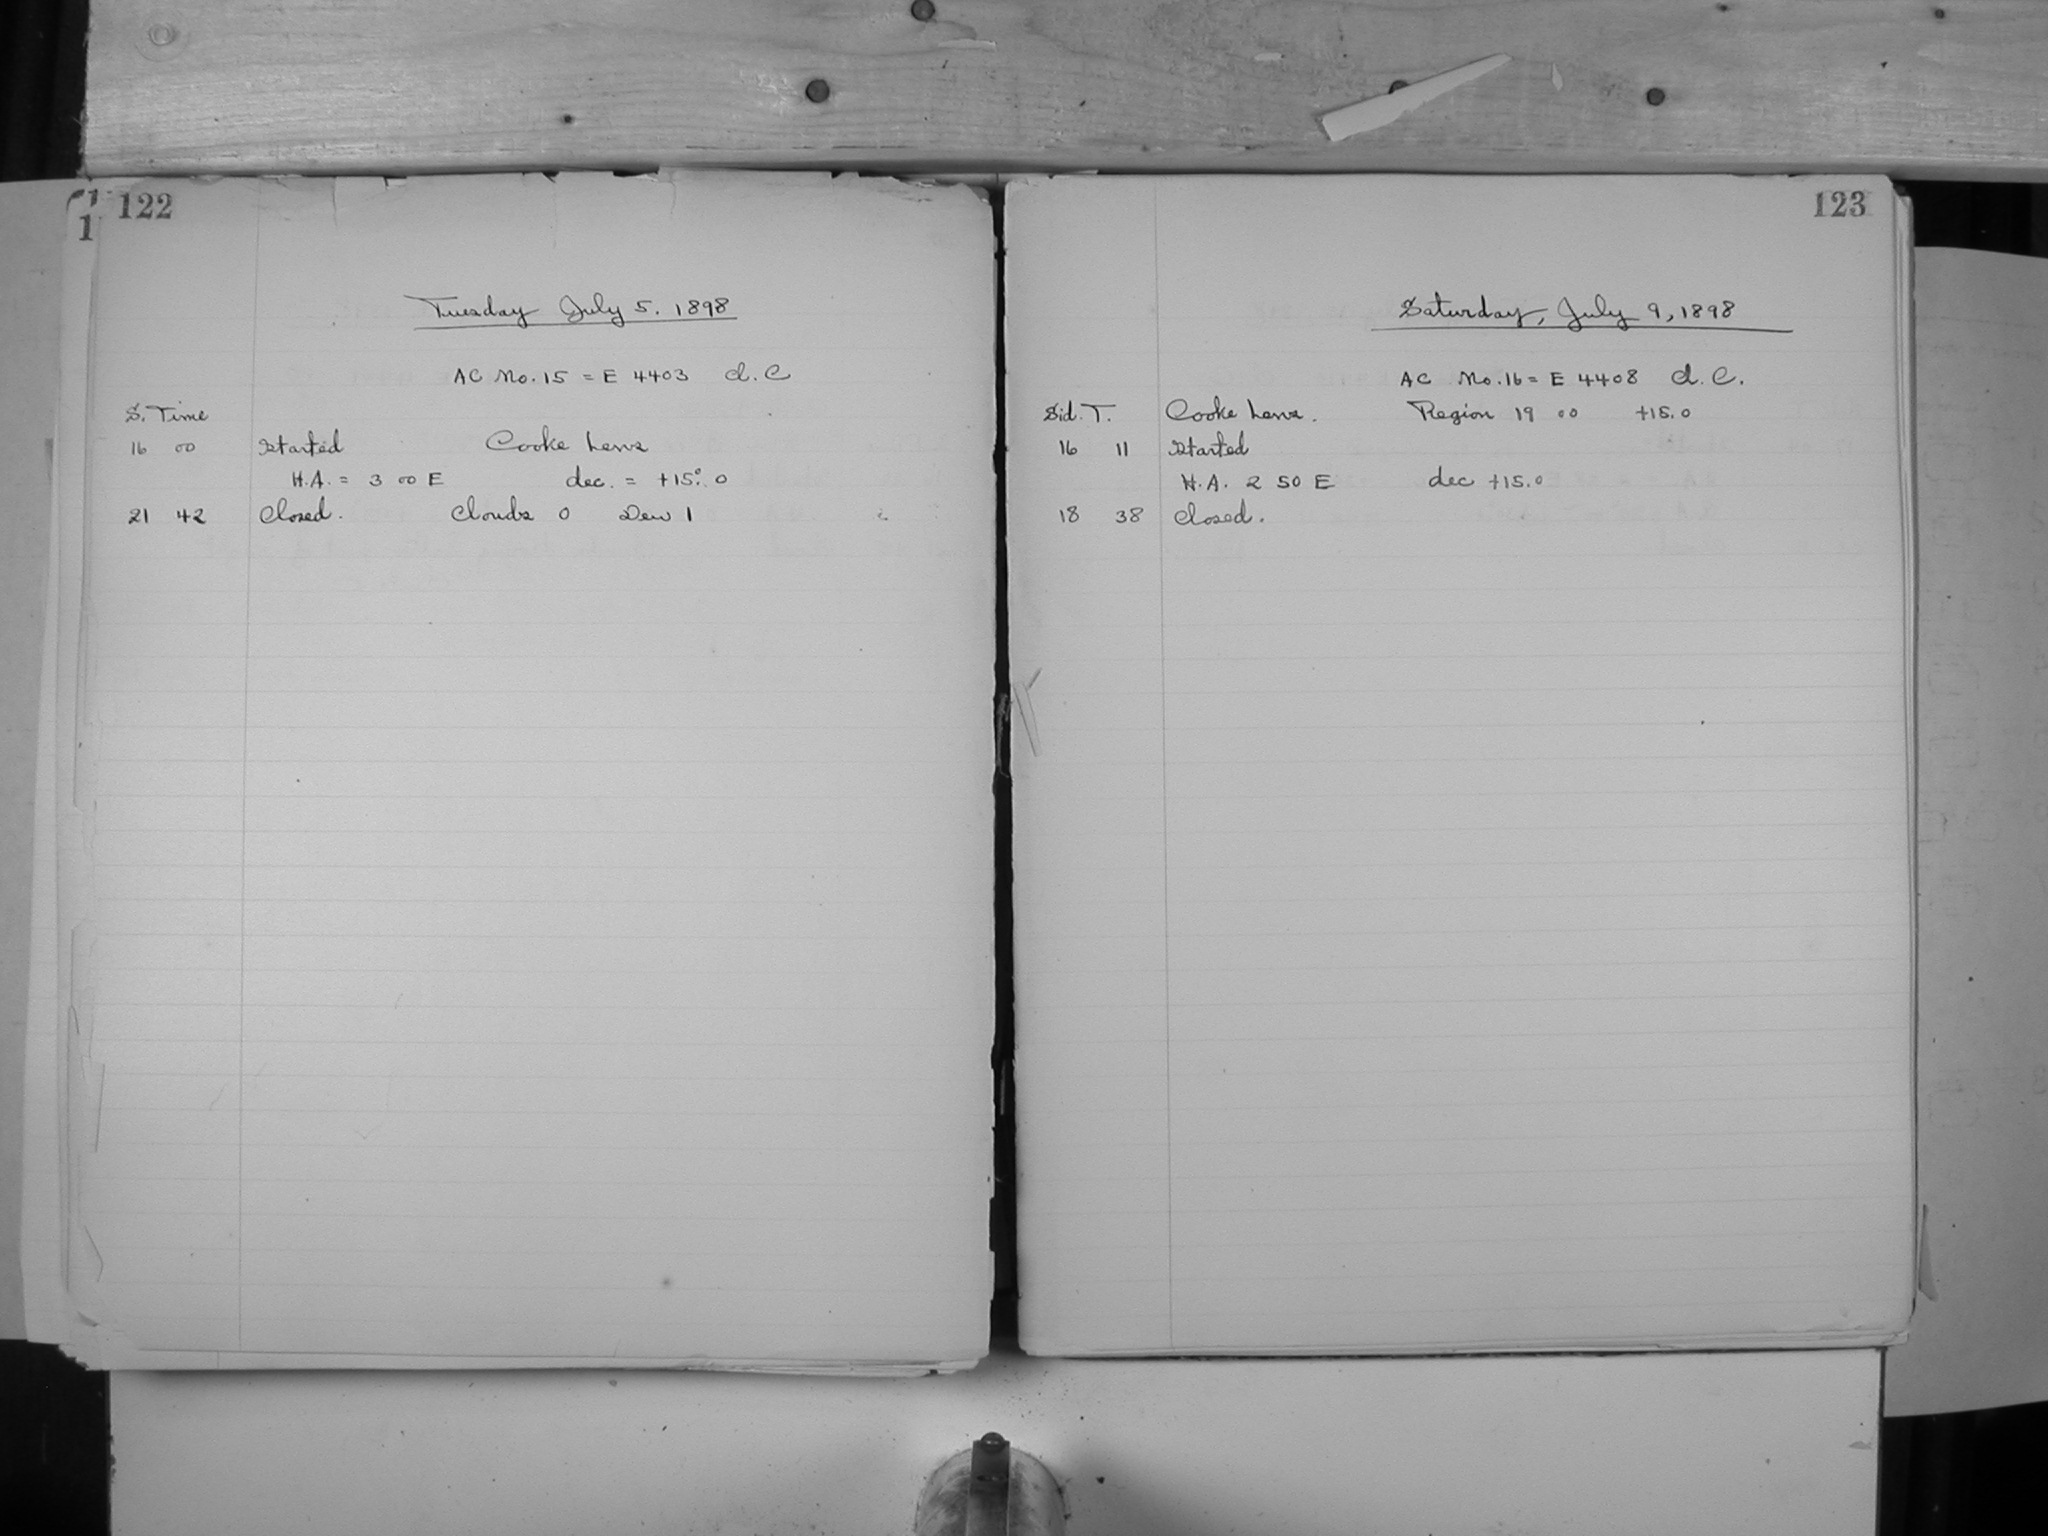 122
Tuesday July 5. 1898
AC No. 15 = E 4403 d. C
S. Time
16 00 Started Cooke Lens
H.A. = 3 00 E dec. = +15°.0
21 42 Closed. Clouds 0 Dew 1
123
Saturday, July 9, 1898
AC No. 16 = E 4408 d. C.
Sid. T. Cooke Lens. Region 19 00 +15.0
16 11 Started
H.A. 2 50 E dec +15.0
18 38 Closed.